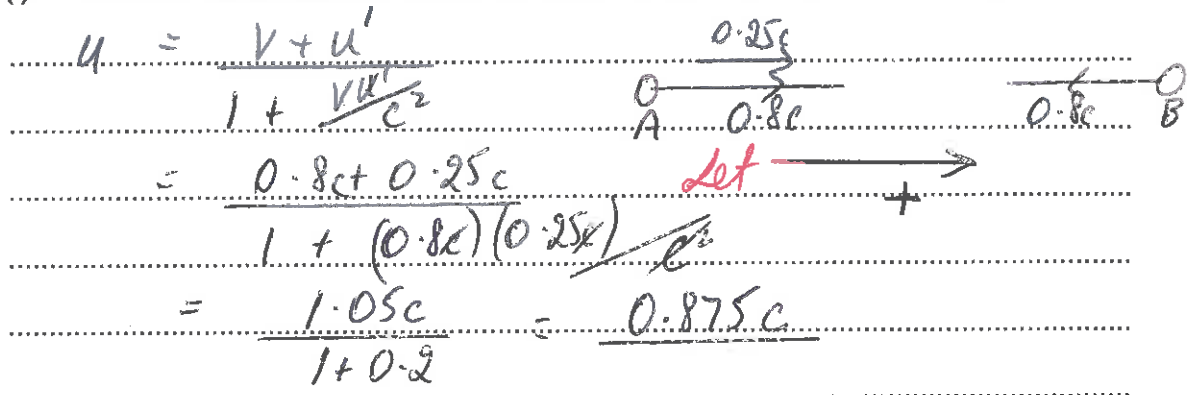 u = V + u' / 1 + Vu'/c²
0.25c
A 0.8c
0.8c B
= 0.8c + 0.25c / 1 + (0.8c)(0.25c)/c²
Let +
= 1.05c / 1 + 0.2 = 0.875c